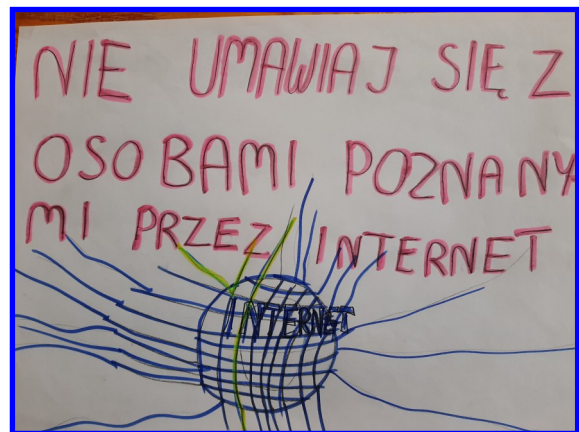 NIE UMAWIAJ SIĘ Z
OSOBAMI POZNANY
MI PRZEZ INTERNET
INTERNET